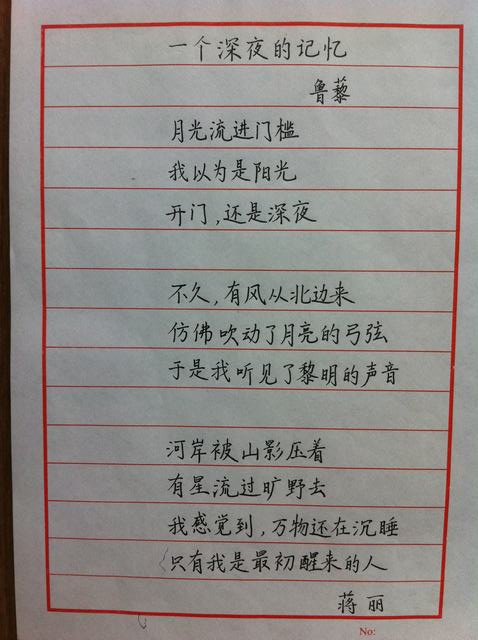 一个深夜的记忆
鲁藜
月光流进门槛
我以为是阳光
开门,还是深夜
不久,有风从北边来
仿佛吹动了月亮的弓弦
于是我听见了黎明的声音
河岸被山影压着
有星流过旷野去
我感觉到,万物还在沉睡
只有我是最初醒来的人
蒋丽
No: